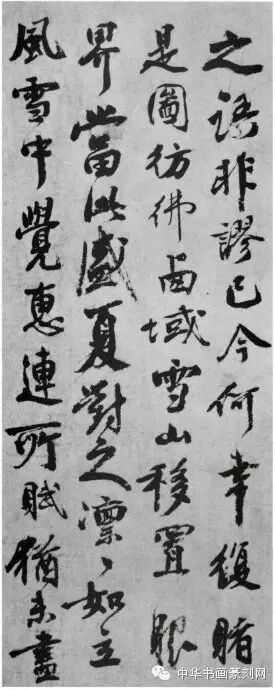 之語非謬已今何幸復睹
是圖彷彿卥域雪山移置眼
界當此盛夏對之凛〻如立
風雪中覺惠連所賦猶未盡
中华书画篆刻网